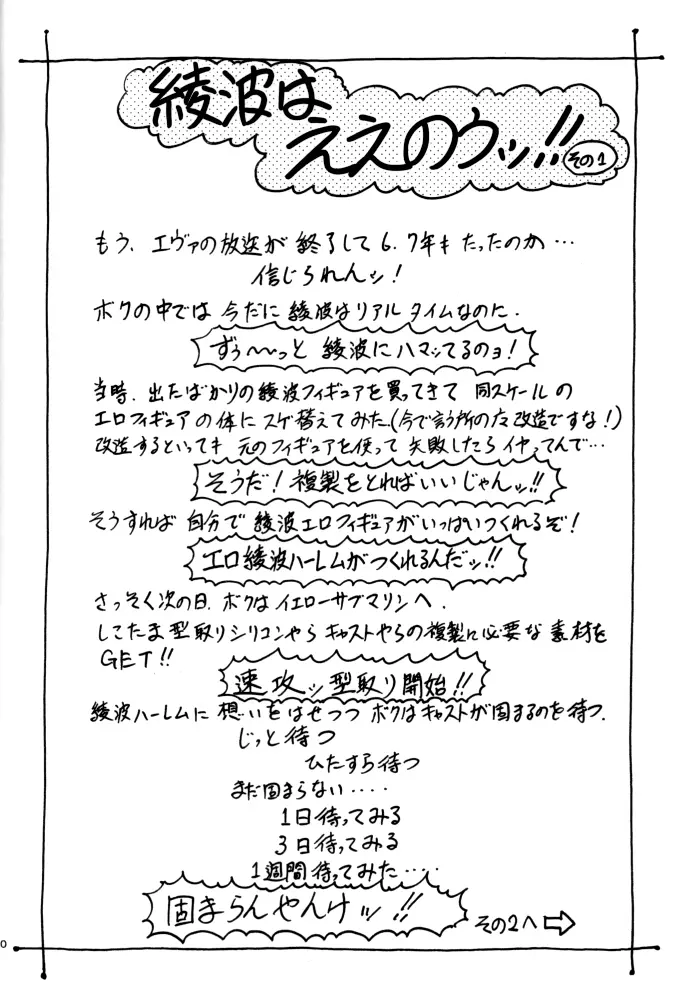 綾波は
ええのウッ!!
その1
もう、エヴァの放送が終了して6.7年もたったのか…
信じられんッ!
ボクの中では今だに綾波はリアルタイムなのに.
ずぅ〜〜っと綾波にハマッてるのョ!
当時.出たばかりの綾波フィギュアを買ってきて同スケールの
エロフィギュアの体にスゲ替えてみた.(今で言う所の改造ですな!)
改造するといっても元のフィギュアを使って失敗したらイヤってんで…
そうだ!複製をとればいいじゃんッ!!
そうすれば自分で綾波エロフィギュアがいっぱいつくれるぞ!
エロ綾波ハーレムがつくれるんだッ!!
さっそく次の日.ボクはイエローサブマリンへ.
しこたま型取りシリコンやらキャストやらの複製に必要な素材を
GET!!
速攻ッ型取り開始!!
綾波ハーレムに想いをはせつつボクはキャストが固まるのを待つ.
じっと待つ
ひたすら待つ
まだ固まらない‥‥
1日待ってみる
3日待ってみる
1週間待ってみた‥‥
固まらんやんけッ!!
その2へ⇨
0